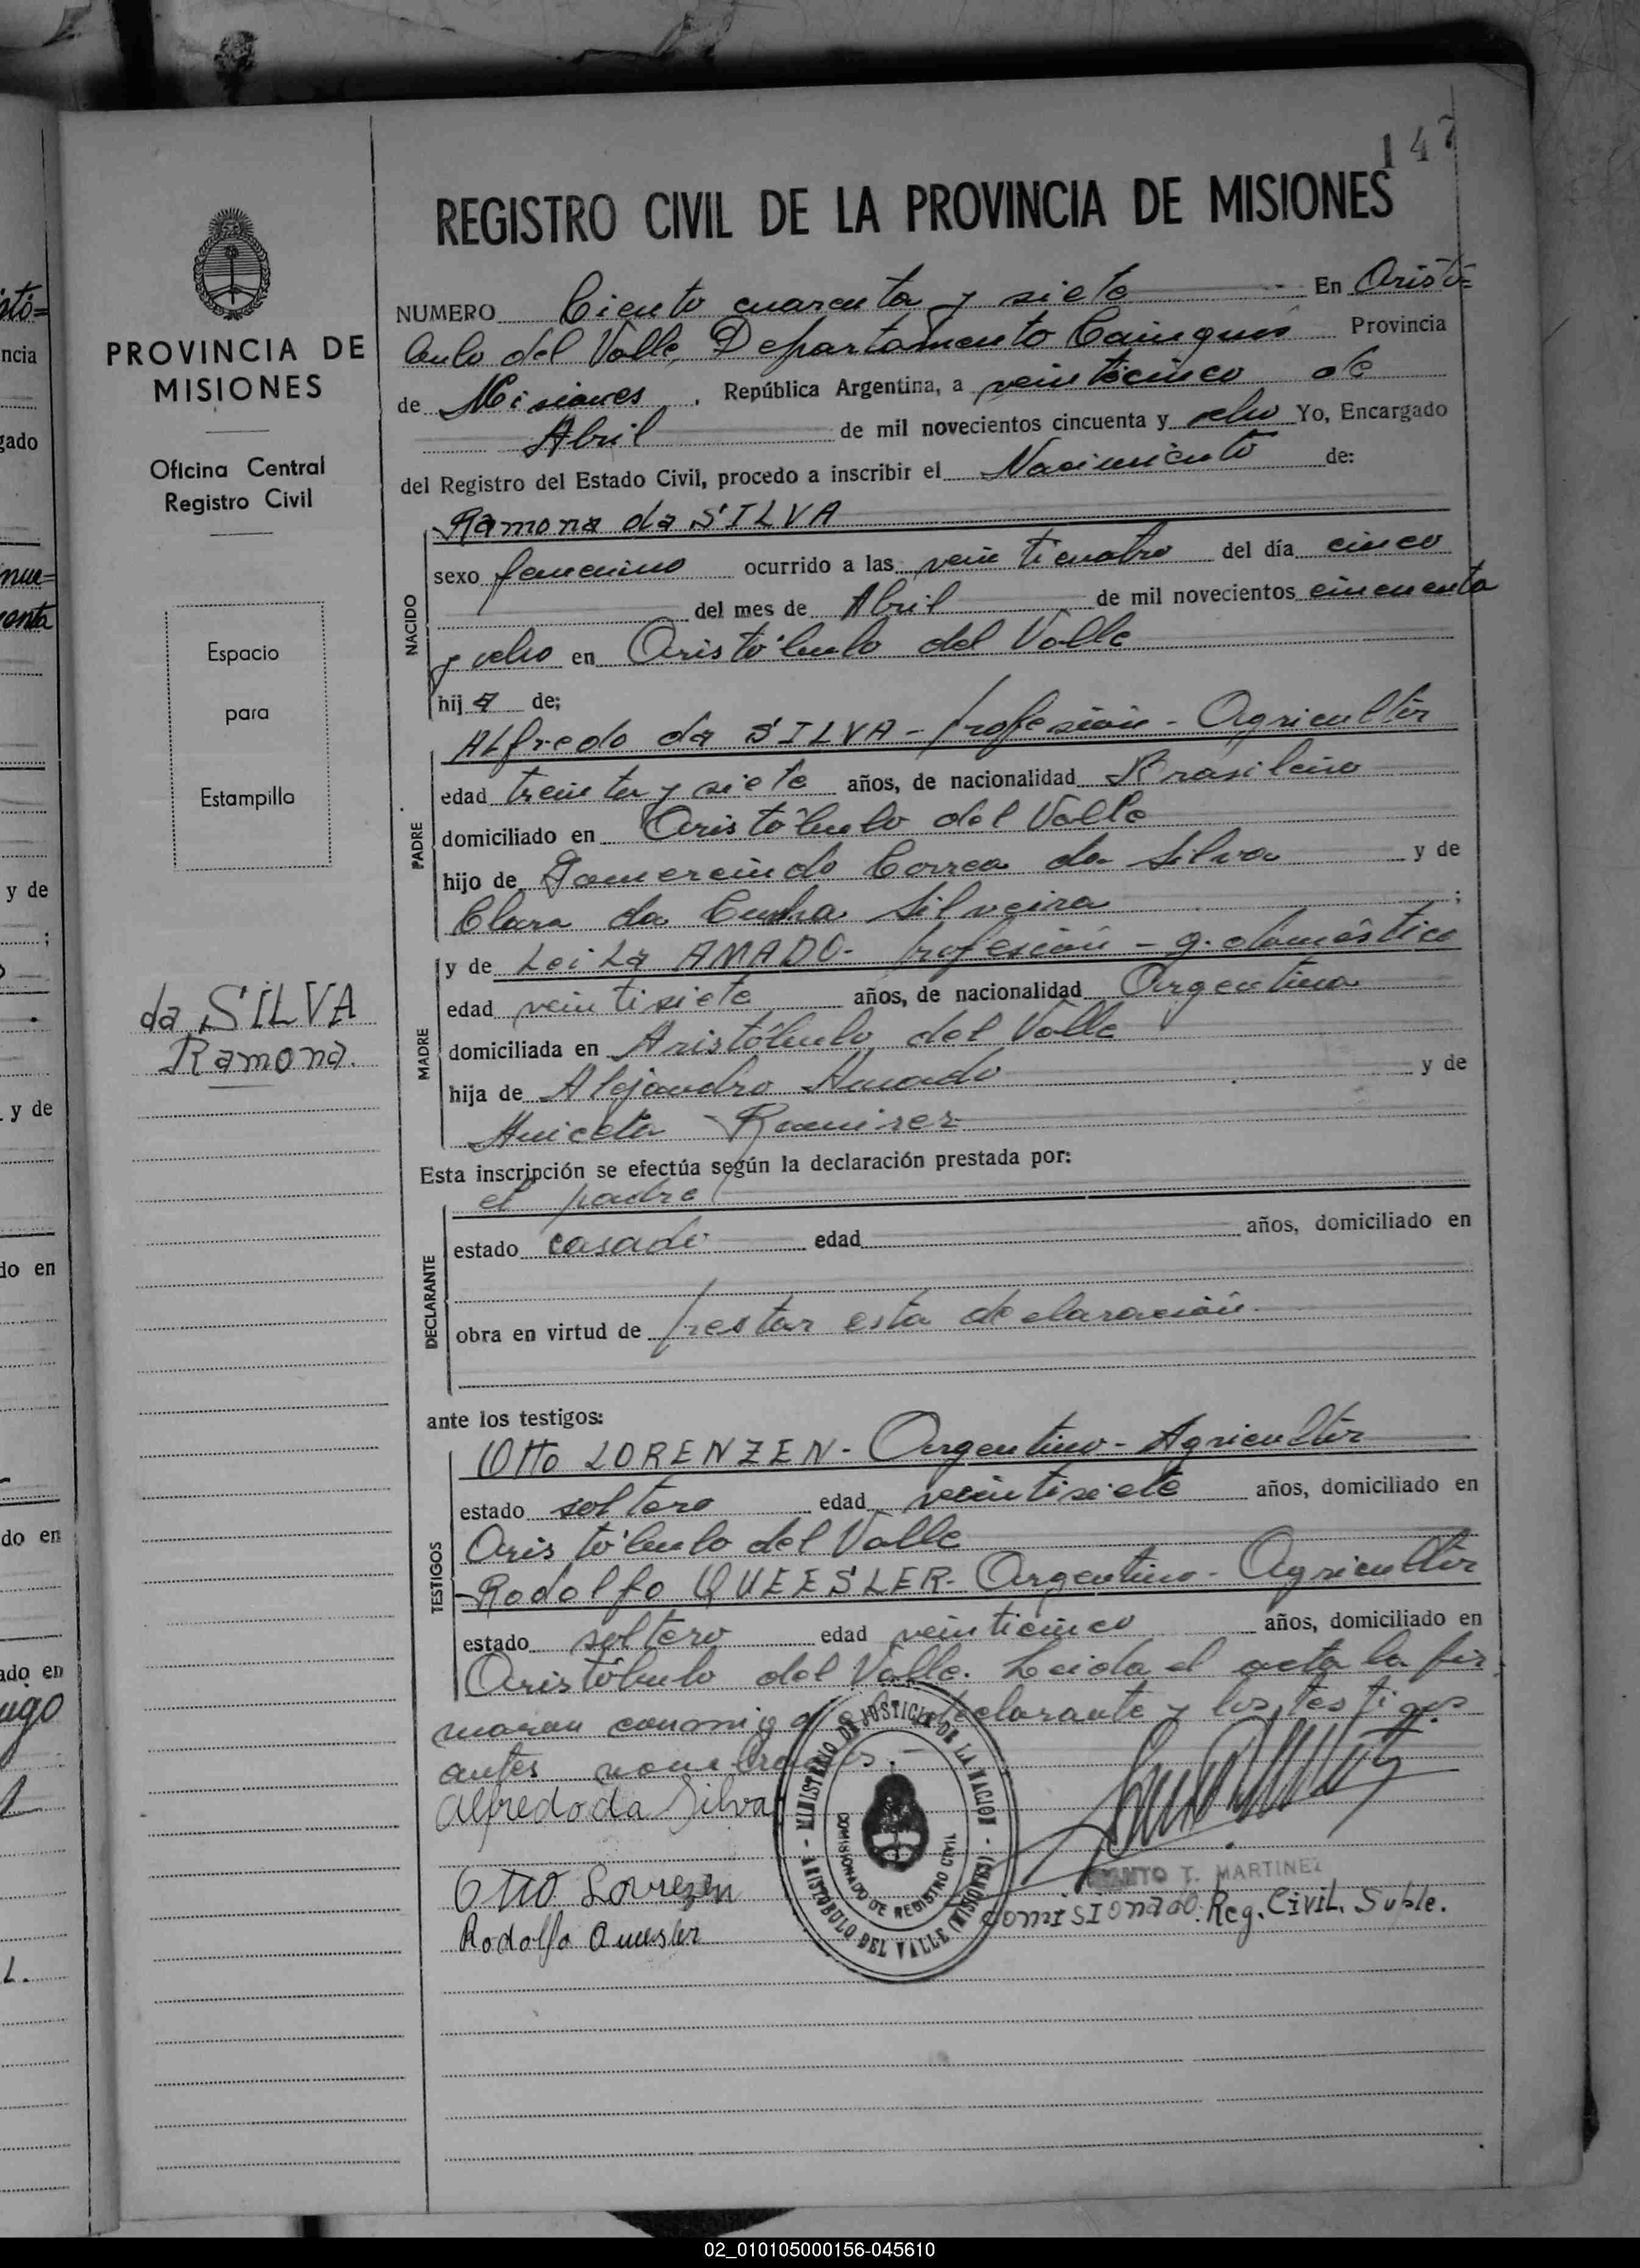 147
REGISTRO CIVIL DE LA PROVINCIA DE MISIONES
PROVINCIA DE
MISIONES
Oficina Central
Registro Civil
Espacio
para
Estampilla
da SILVA
Ramona.
NUMERO Ciento cuarenta y siete En Aristó=
bulo del Valle, Departamento Cainguás Provincia
de Misiones, República Argentina, a veinticinco de
Abril de mil novecientos cincuenta y ocho Yo, Encargado
del Registro del Estado Civil, procedo a inscribir el Nacimiento de:
NACIDO
Ramona da SILVA
sexo femenino ocurrido a las veinticuatro del día cinco
del mes de Abril de mil novecientos cincuenta
y ocho en Aristóbulo del Valle
hija de;
PADRE
Alfredo da SILVA - profesión - Agricultor
edad treinta y siete años, de nacionalidad Brasileño
domiciliado en Aristóbulo del Valle
hijo de Gomercindo Correa da Silva y de
Clara da Cunha Silveira ;
MADRE
y de Leila AMADO - profesión - q. doméstico
edad veintisiete años, de nacionalidad Argentina
domiciliada en Aristóbulo del Valle
hija de Alejandro Amado y de
Aniceta Ramirez
Esta inscripción se efectúa según la declaración prestada por:
DECLARANTE
el padre
estado casado edad años, domiciliado en
obra en virtud de prestar esta declaración.
ante los testigos:
TESTIGOS
Otto LORENZEN - Argentino - Agricultor
estado soltero edad veintisiete años, domiciliado en
Aristóbulo del Valle
Rodolfo QUEESLER - Argentino - Agricultor
estado soltero edad veinticinco años, domiciliado en
Aristóbulo del Valle. Leida el acta la fir
maron conmigo el declarante y los testigos
antes nombrados. -
Alfredo da Silva
Otto Lorenzen
Rodolfo Queesler
MINISTERIO DE JUSTICIA DE LA NACION
COMISIONADO DE REGISTRO CIVIL
ARISTOBULO DEL VALLE (MISIONES)
T. MARTINEZ
Comisionado Reg. Civil. Suple.
02_010105000156-045610